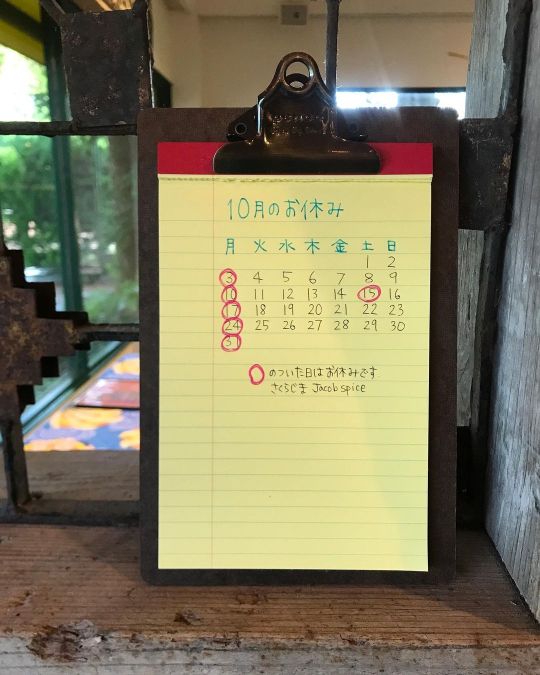 10月のお休み
月 火 水 木 金 土 日
1 2
3 4 5 6 7 8 9
10 11 12 13 14 15 16
17 18 19 20 21 22 23
24 25 26 27 28 29 30
31
のついた日はお休みです
さくらじま Jacob spice